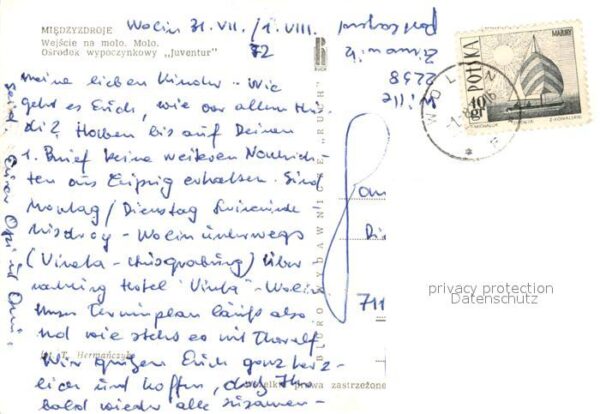 MIĘDZYZDROJE
Wejście na molo. Molo.
Ośrodek wypoczynkowy „Juventur"
Wolin 31. VII. / 1. VIII.
72
meine lieben Kinder – Wie
geht es Euch, wie vor allem
Dir? Haben bis auf Deinen
1. Brief keine weiteren Nachrich-
ten aus Leipzig erhalten. Sind
Montag / Dienstag Swinemünde –
Misdroy – Wolin unterwegs
(Vineta – Ausgrabung) Über
Hotel "Vineta" – Wolin.
Unser Terminplan läuft also
und wie steht es mit
Wir grüßen Euch ganz herz-
lich und hoffen, daß Ihr
bald wieder alle zusammen –
fot. T. Hermańczyk
BIURO WYDAWNICZE „RUCH"
Wszelkie prawa zastrzeżone
Willi
2298
711
POLSKA
MAZURY
10 gr
WOLIN
privacy protection
Datenschutz